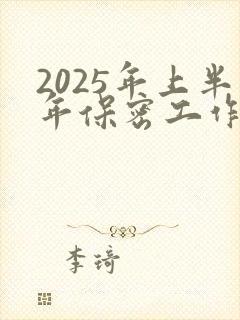 2025年上半
年保密工作
李琦